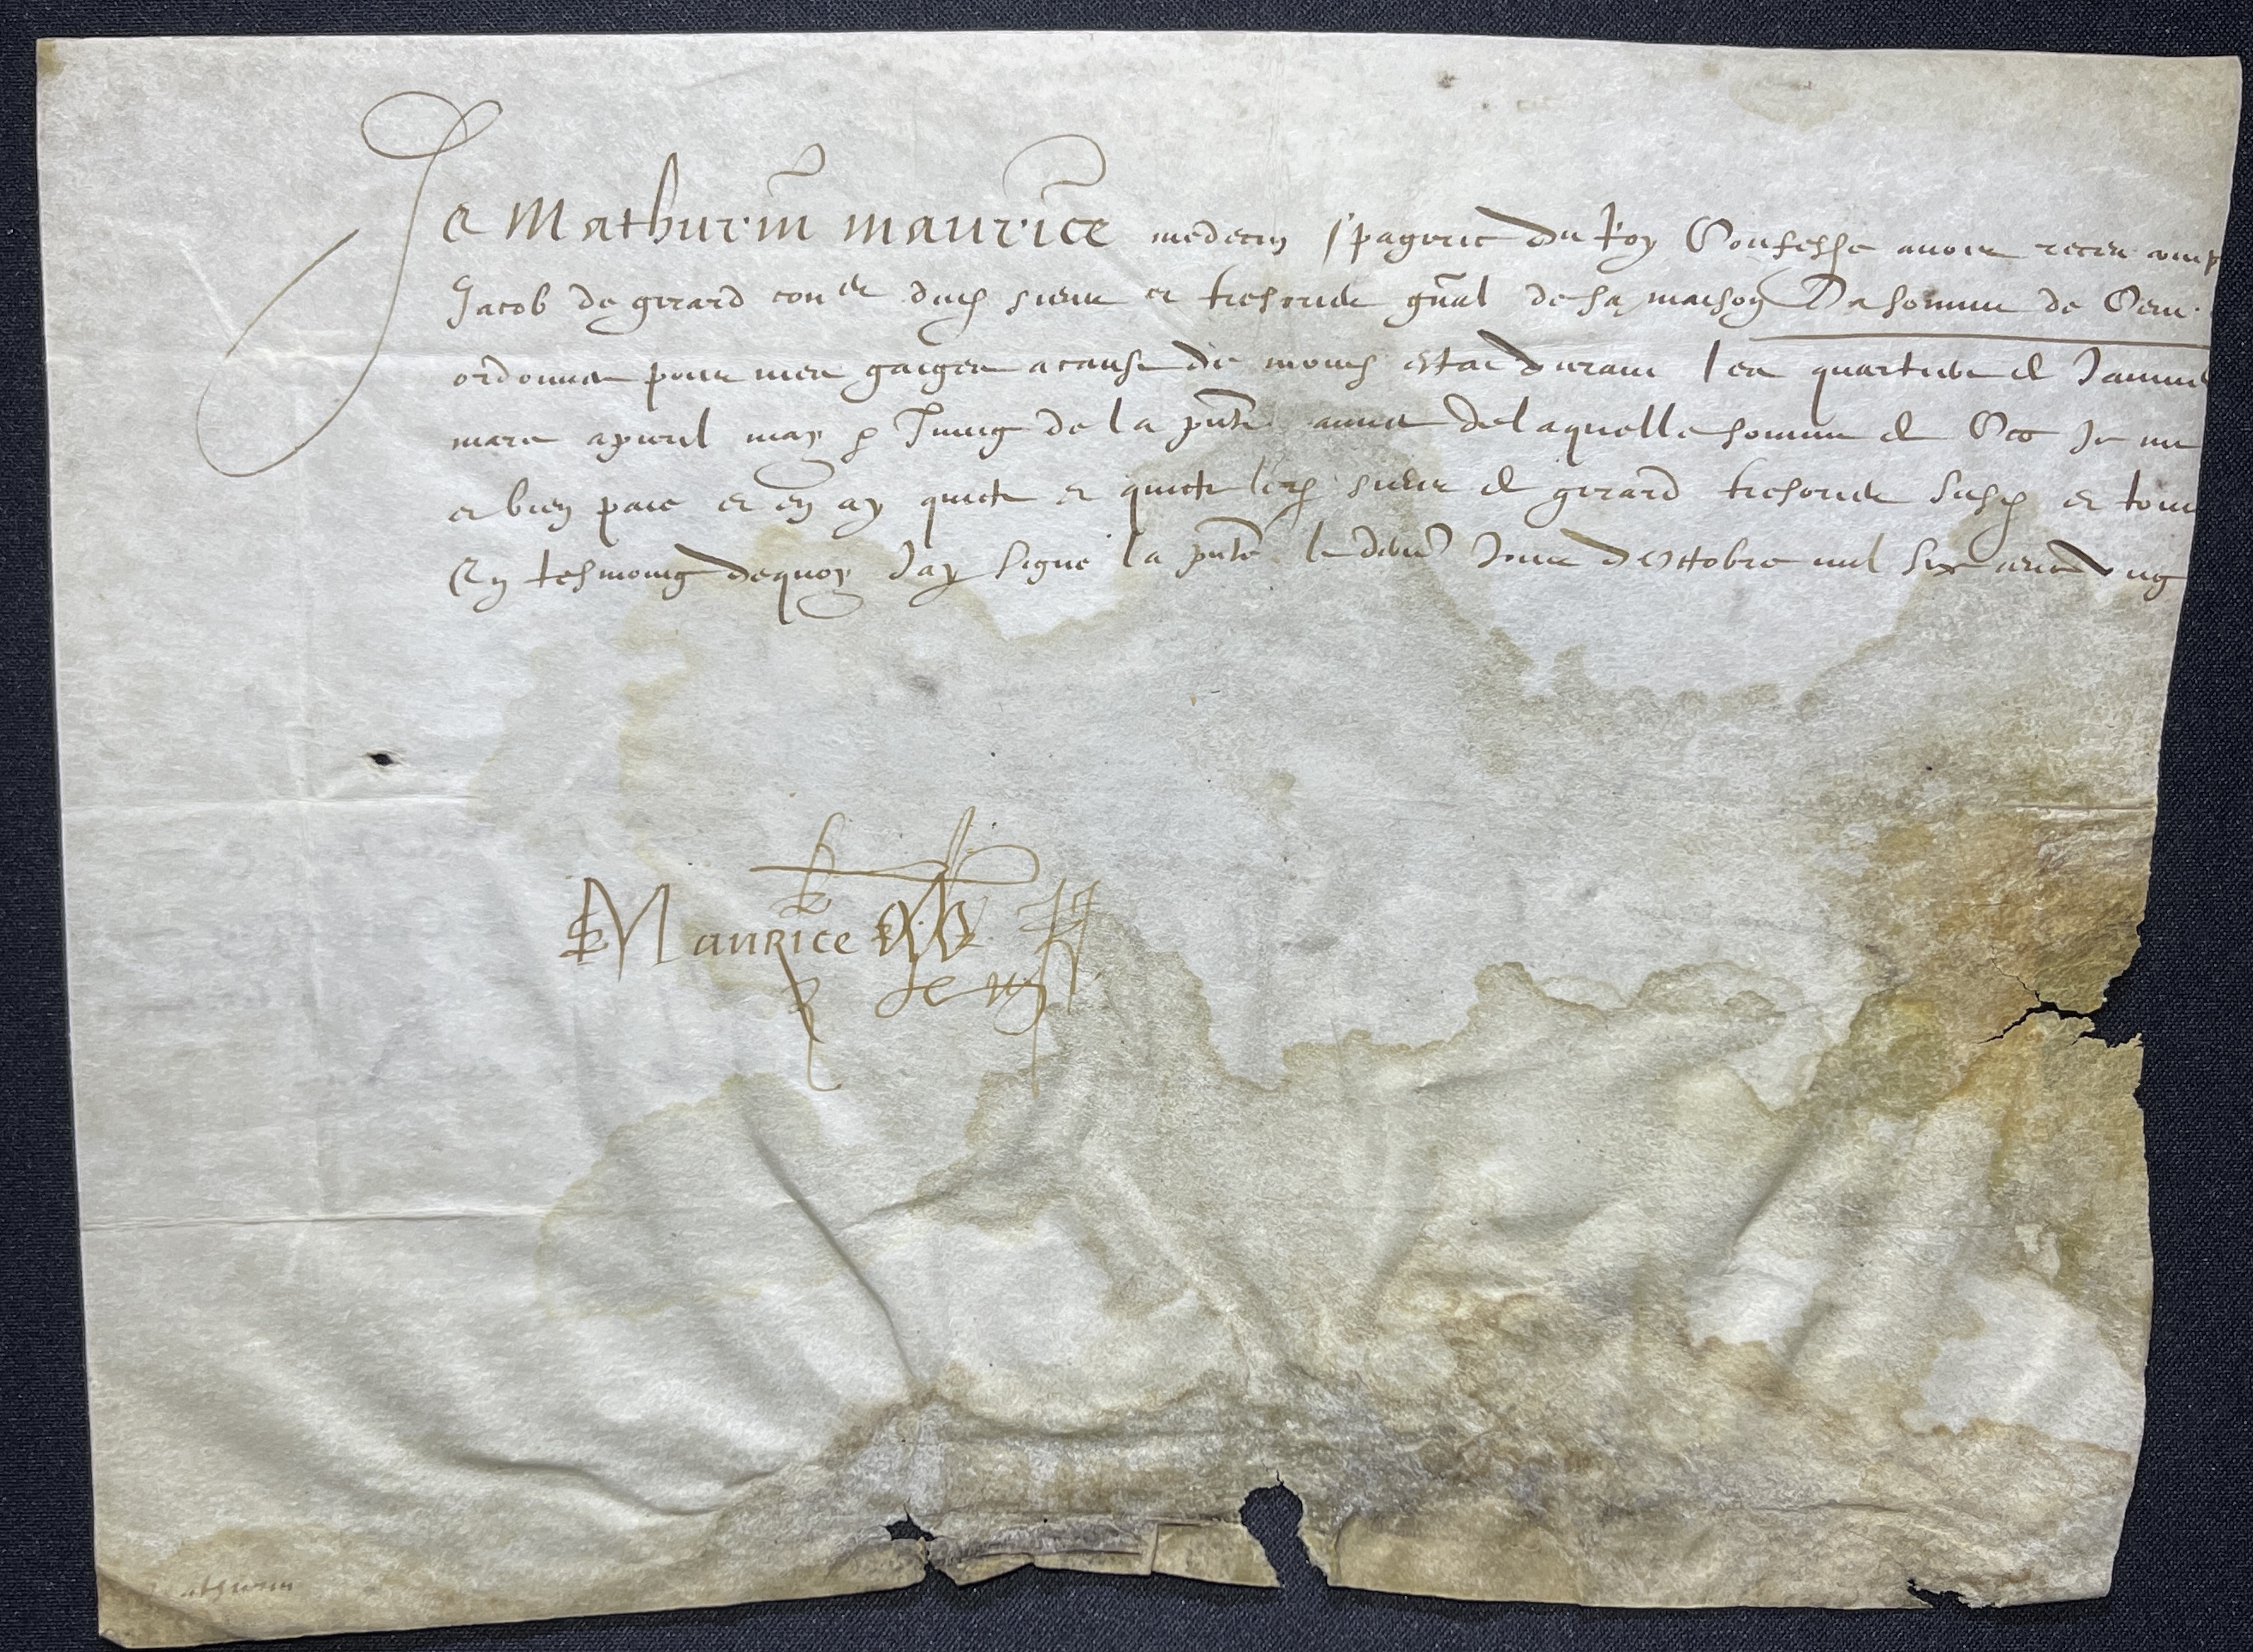 Je Mathurin maurice medecin spageric du Roy Confesse avoir receu comp
Jacob de girard con er dud sieur et tresorier gñal de sa maison La somme de Cen
ordonnee pour mes gaiges a cause de moud estat durant les quartiers de Janvie
mars apvril may & Juing de la pñte annee de laquelle somme de Je me
et bien paie et en ay quicte et quicte led sieur de girard tresorier susd et tous
En tesmoing dequoy Jay signe la pñte le jour doctobre mil six cens ung
Maurice
athurin